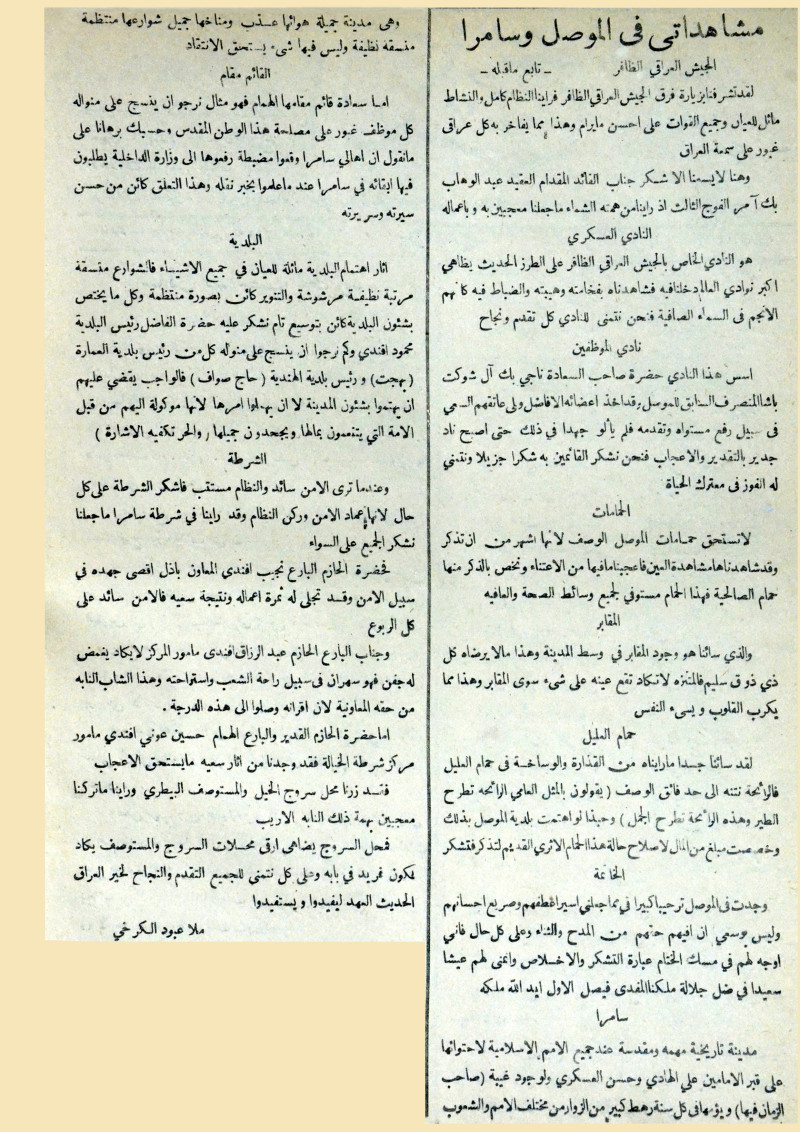 مشاهداتي في الموصل وسامرا
الجيش العراقي الظافر ــ تابع ماقبله ــ
لقد تشرفنا بزيارة فرق الجيش العراقي الظافر فراينا النظام كامل والنشاط
ماثل للعيان وجميع القوات على احسن مايرام وهذا مما يفاخر به كل عراقي
غيور على سمعة العراق
وهنا لايسعنا الا شكر جناب القائد المقدام العقيد عبد الوهاب
بك آمر الفوج الثالث اذ راينا من همته الشماء ماجعلنا معجبين به وباعماله
النادي العسكري
هو النادي الخاص بالجيش العراقي الظافر على الطرز الحديث يظاهي
اكبر نوادي العالم دخلنا فيه فشاهدناه بفخامته وهيبته والضباط فيه كانهم
الانجم في السماء الصافية فنحن نتمنى للنادي كل تقدم ونجاح
نادي الموظفين
اسس هذا النادي حضرة صاحب السعادة ناجي بك آل شوكت
باشا المتصرف السابق للموصل وقد اخذ اعضائه الافاضل ولى عاتقهم السعي
في سبيل رفع مستواه وتقدمه فلم يألو جهدا في ذلك حتى اصبح ناد
جدير بالتقدير والاعجاب فنحن نشكر القائمين به شكرا جزيلا ونتمنى
له الفوز في معترك الحياة
الحمامات
لاتستحق حمامات الموصل الوصف لانها اشهر من ان تذكر
وقد شاهدناها مشاهدة العين فاعجبنا مافيها من الاعتناء ونخص بالذكر منها
حمام الصالحية فهذا الحمام مستوفي لجميع وسائط الصحة والعافيه
المقابر
والذي سائنا هو وجود المقابر في وسط المدينة وهذا مالا يرضاه كل
ذي ذوق سليم فالمتنزه لاتكاد تقع عينه على شيء سوى المقابر وهذا مما
يكرب القلوب ويسيء النفس
حمام العليل
لقد سائنا جسدا مارايناه من القذارة والوساخة في حمام العليل
فالرائحة نتنه الى حد فائق الوصف ( يقولون بالمثل العامي الرائحه تطرح
الطير وهذه الرائحة تطرح الجمل ) وحبذا لو اهتمت بلدية الموصل بذلك
وخصصت مبلغ من المال لاصلاح حالة هذا الحمام الاثري القديم لتذكر فتشكر
الخاتمة
وجدت في الموصل ترحيبا كبيرا في مما جعلني اسير اعطفهم وصريع احسانهم
وليس بوسعي ان افيهم حقهم من المدح والثناء وعلى كل حال فاني
اوجه لهم في مسك الختام عبارة التشكر والاخلاص واتمنى لهم عيشا
سعيدا في ضل جلالة ملكنا المفدى فيصل الاول ايد الله ملكه
سامرا
مدينة تاريخية مهمه ومقدسة عند جميع الامم الاسلامية لاحتوائها
على قبر الامامين علي الهادي وحسن العسكري ولوجود غيبة (صاحب
الزمان فيها) ويؤمها في كل سنة رهط كبير من الزوار من مختلف الامم والشعوب
وهي مدينة جميلة هوائها عذب ومناخها جميل شوارعها منتظمة
منسقة نظيفة وليس فيها شيء يستحق الانتقاد
القائم مقام
اما سعادة قائم مقامها الهمام فهو مثال نرجو ان ينسج على منواله
كل موظف غيور على مصلحة هذا الوطن المقدس وحسبك برهانا على
مانقول ان اهالي سامرا وقعوا مضبطة رفعوها الى وزارة الداخلية يطلبون
فيها ابقائه في سامرا عند ماعلموا بخبر نقله وهذا التعلق كائن من حسن
سيرته وسريرته
البلدية
اثار اهتمام البلدية ماثلة للعيان في جميع الاشياء فالشوارع منسقة
مرتبة نظيفة مرشوشة والتنوير كائن بصورة منتظمة وكل مايختص
بشئون البلدية كائن بتوسيع تام نشكر عليه حضرة الفاضل رئيس البلدية
محمود افندي وكم نرجوا ان ينسج على منواله كل من رئيس بلدية العمارة
(بهجت) ورئيس بلدية الهندية ( حاج صواف ) فالواجب يقضي عليهم
ان يهتموا بشئون المدينة لا ان يهملوا امرها لانها موكولة اليهم من قبل
الامة التي يتنعمون بمالها ويجحدون جميلها ( والحر تكفيه الاشارة )
الشرطة
وعندما ترى الامن سائد والنظام مستتب فاشكر الشرطة على كل
حال لانها عماد الامن وركن النظام وقد راينا في شرطة سامرا ماجعلنا
نشكر الجميع على السواء
فحضرة الحازم البارع نجيب افندي المعاون باذل اقصى جهده في
سبيل الامن وقد تجلى له ثمرة اعماله ونتيجة سعيه فالامن سائد على
كل الربوع
وجناب البارع الحازم عبد الرزاق افندي مامور المركز لايكاد يغمض
له جفن فهو سهران في سبيل راحة الشعب واستراحته وهذا الشاب النابه
من حقه المعاونية لان اقرانه وصلوا الى هذه الدرجة .
اما حضرة الحازم القدير والبارع الهمام حسين عوني افندي مامور
مركز شرطة الخيالة فقد وجدنا من اثار سعيه مايستحق الاعجاب
فقد زرنا محل سروج الخيل والمستوصف البيطري وراينا ماتركنا
معجبين بهمة ذلك النابه الاريب
فمحل السروج يضاهى ارقى محلات السروج والمستوصف يكاد
يكون فريد في بابه وعلى كل نتمنى للجميع التقدم والنجاح لخير العراق
الحديث العهد ليفيدوا ويستفيدوا
ملا عبود الكرخي